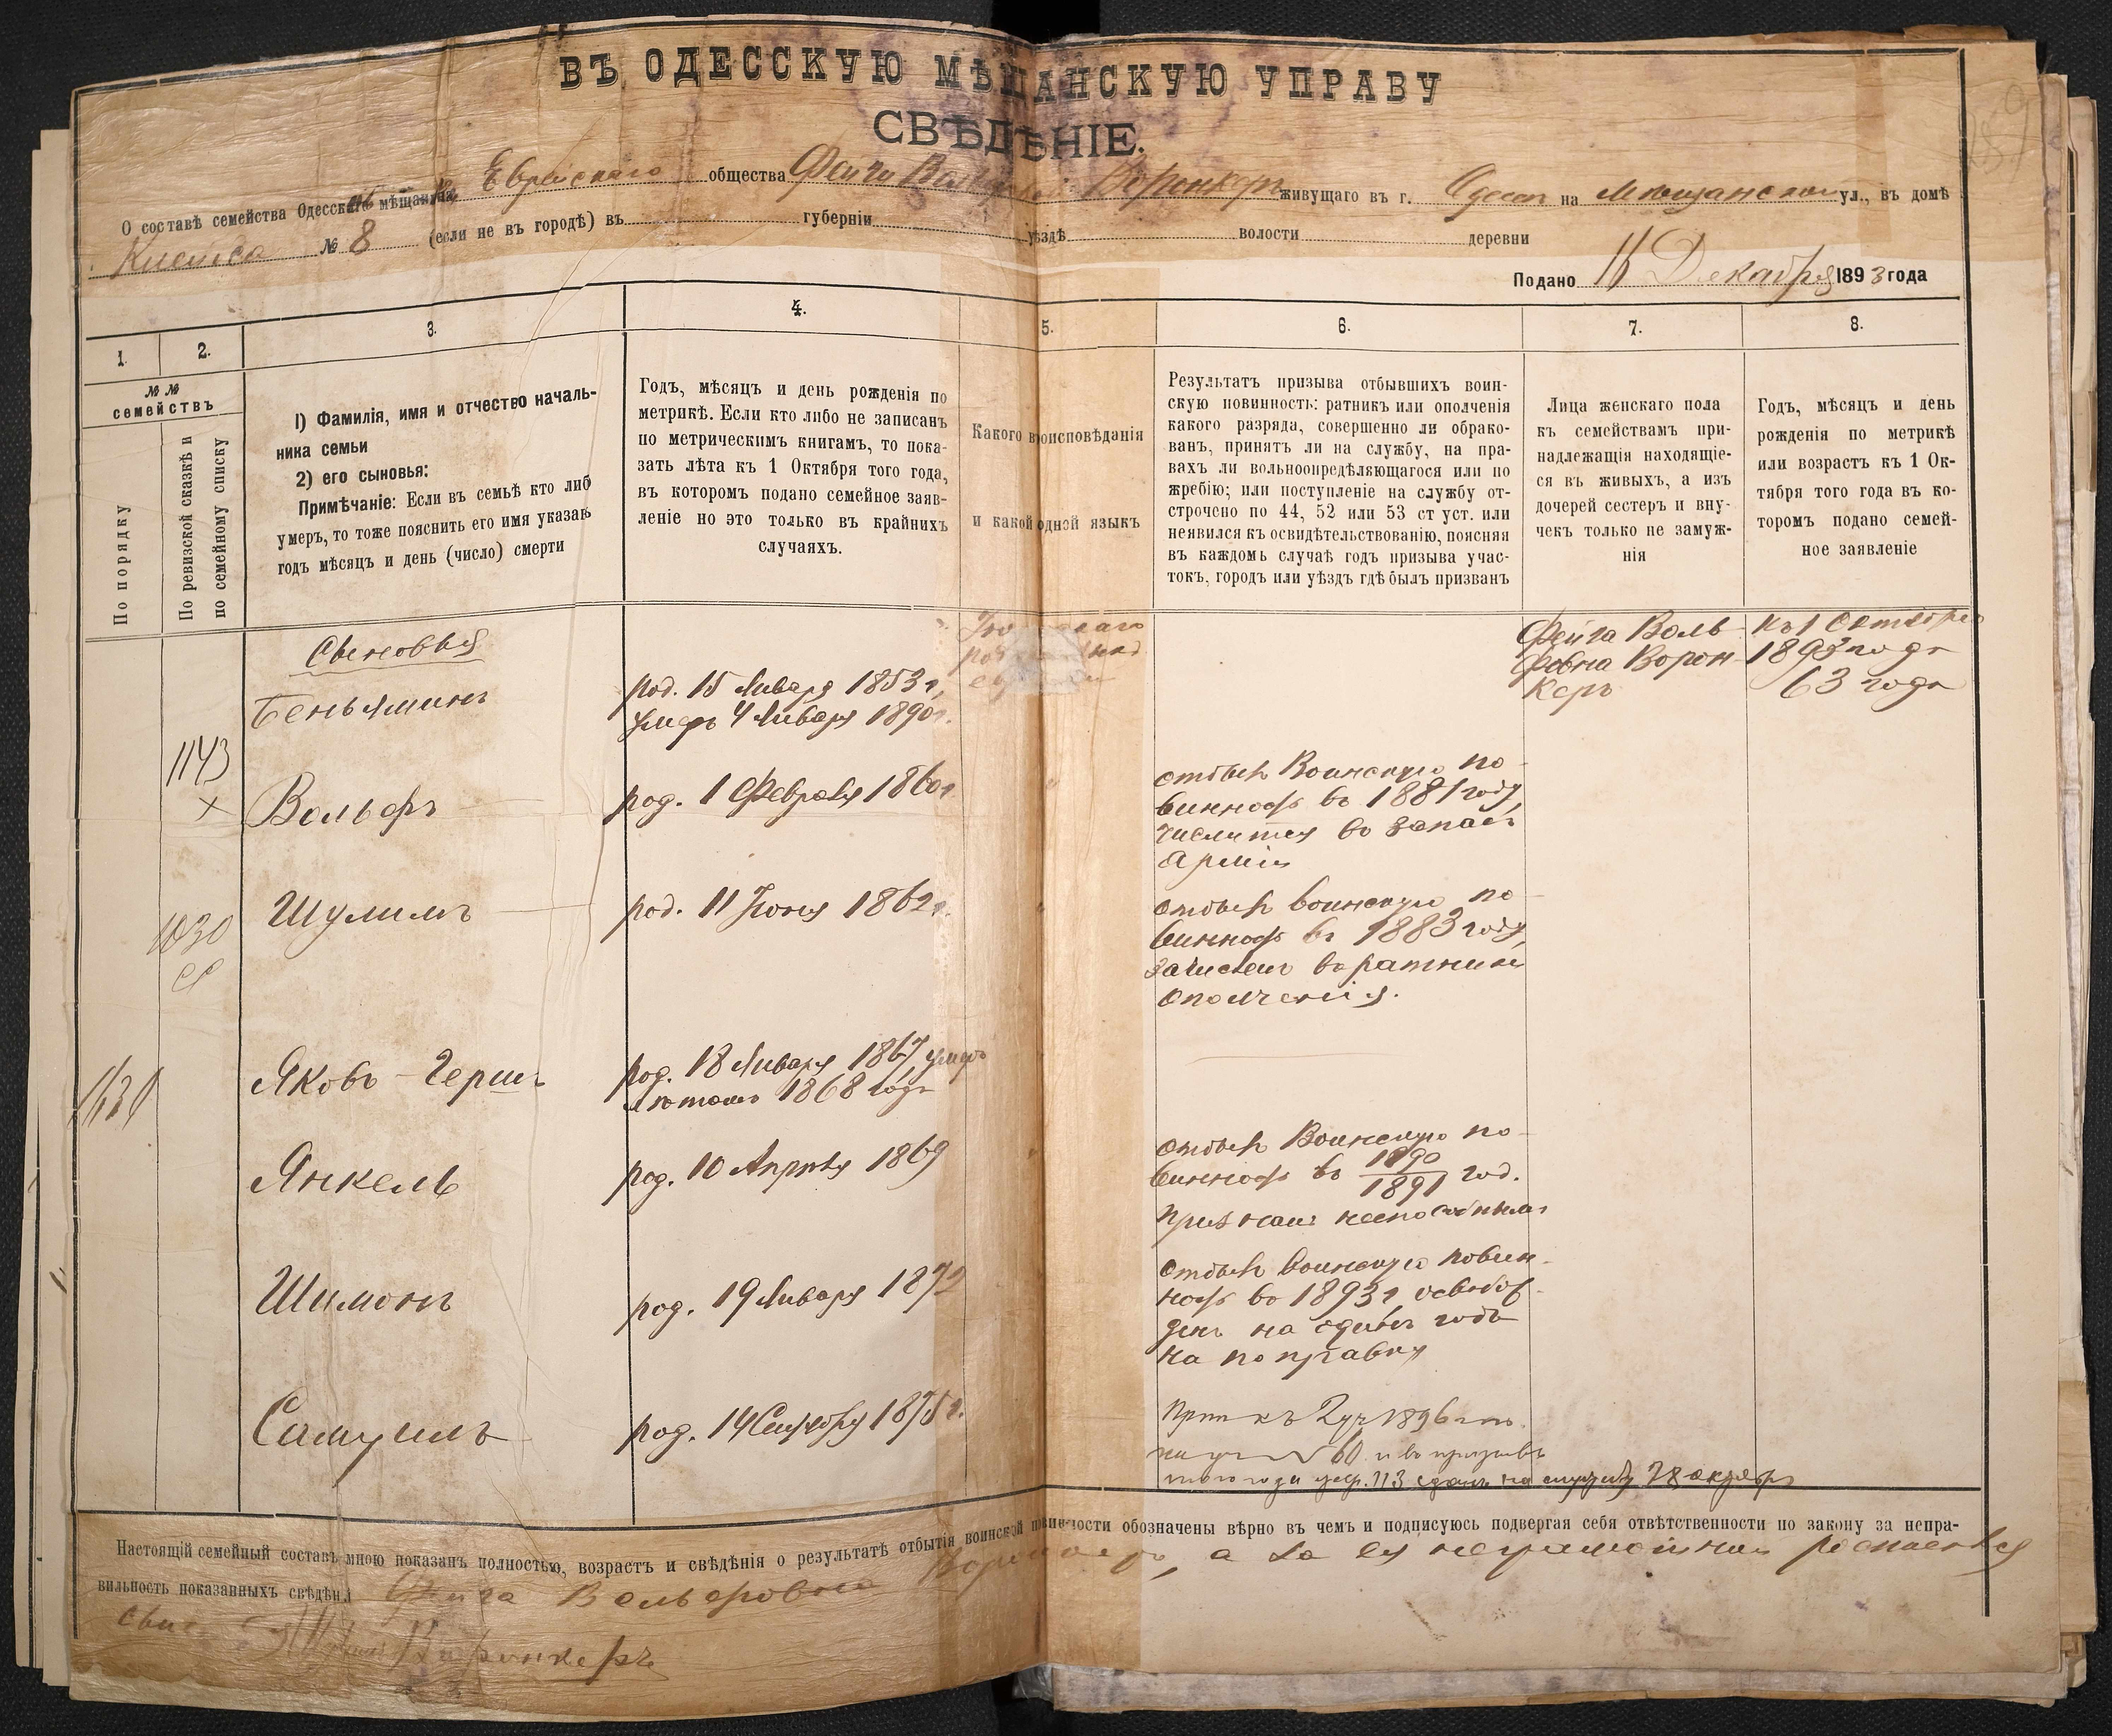 ВЪ ОДЕССКУЮ МѢЩАНСКУЮ УПРАВУ
СВѢДѢНІЕ.
О составѣ семейства Одесск мѣщан Еврейскаго общества Фейги Воронкеръ живущаго въ г. Одессѣ на Мѣщанской ул., въ домѣ
№ 8 (если не въ городѣ) въ губерніи уѣздѣ волости деревни
Подано 16 Декабря 1893 года
1. 2. 3. 4. 5. 6. 7. 8.
№ №
семействъ
По порядку
По ревизской сказкѣ и
по семейному списку
1) Фамилія, имя и отчество началь-
ника семьи
2) его сыновья:
Примѣчаніе: Если въ семьѣ кто либ
умеръ, то тоже пояснить его имя указавъ
годъ мѣсяцъ и день (число) смерти
Годъ, мѣсяцъ и день рожденія по
метрикѣ. Если кто либо не записанъ
по метрическимъ книгамъ, то пока-
зать лѣта къ 1 Октября того года,
въ которомъ подано семейное заяв-
леніе но это только въ крайнихъ
случаяхъ.
Какого вроисповѣданія
и какой одной языкъ
Результатъ призыва отбывшихъ воин-
скую повинность: ратникъ или ополченія
какого разряда, совершенно ли обрако-
ванъ, принятъ ли на службу, на пра-
вахъ ли вольноопредѣляющагося или по
жребію; или поступленіе на службу от-
строчено по 44, 52 или 53 ст уст. или
неявился къ освидѣтельствованію, поясняя
въ каждомъ случаѣ годъ призыва учас-
токъ, городъ или уѣздъ гдѣ былъ призванъ
Лица женскаго пола
къ семействамъ при-
надлежащія находящіе-
ся въ живыхъ, а изъ
дочерей сестеръ и вну-
чекъ только не замуж-
нія
Годъ, мѣсяцъ и день
рожденія по метрикѣ
или возрастъ къ 1 Ок-
тября того года въ ко-
торомъ подано семей-
ное заявленіе
Сыновья
Беньяминъ
род. 15 Января 1853 г,
умеръ 4 Января 1890 г.
Фейга Воль-
фовна Ворон-
керъ
къ 1 Октября
1893 года
63 года
1143
×
Вольфъ
род. 1 Февраля 1860 г
отбылъ Воинскую по-
винность въ 1881 году,
числится въ запасѣ
Арміи
1030
Шулимъ
род. 11 Іюня 1862 г.
отбылъ воинскую по-
винность въ 1883 году,
зачисленъ въ ратники
ополченія.
1131
Яковъ-Гершъ
род. 18 Января 1867, умеръ
лѣтомъ 1868 года
Янкель
род. 10 Апрѣля 1869
отбылъ Воинскую по-
винность въ 1890/1891 год.
признанъ неспособнымъ
Шимонъ
род. 19 Января 1872
отбылъ воинскую повин-
ность въ 1893 г освобож-
денъ на одинъ годъ
на поправку
Самуилъ
род. 14 Сентября 1875 г.
къ 2 уч 1896
№ 60 и въ призывъ
того года 113 сданъ на службу 28 октября
Настоящій семейный составъ мною показанъ полностью, возрастъ и свѣдѣнія о результатѣ отбытія воинской повинности обозначены вѣрно въ чемъ и подписуюсь подвергая себя отвѣтственности по закону за непра-
вильность показанныхъ свѣдѣн Фейга Вольфовна Воронкеръ, а за ея неграмотной росписался
Воронкеръ